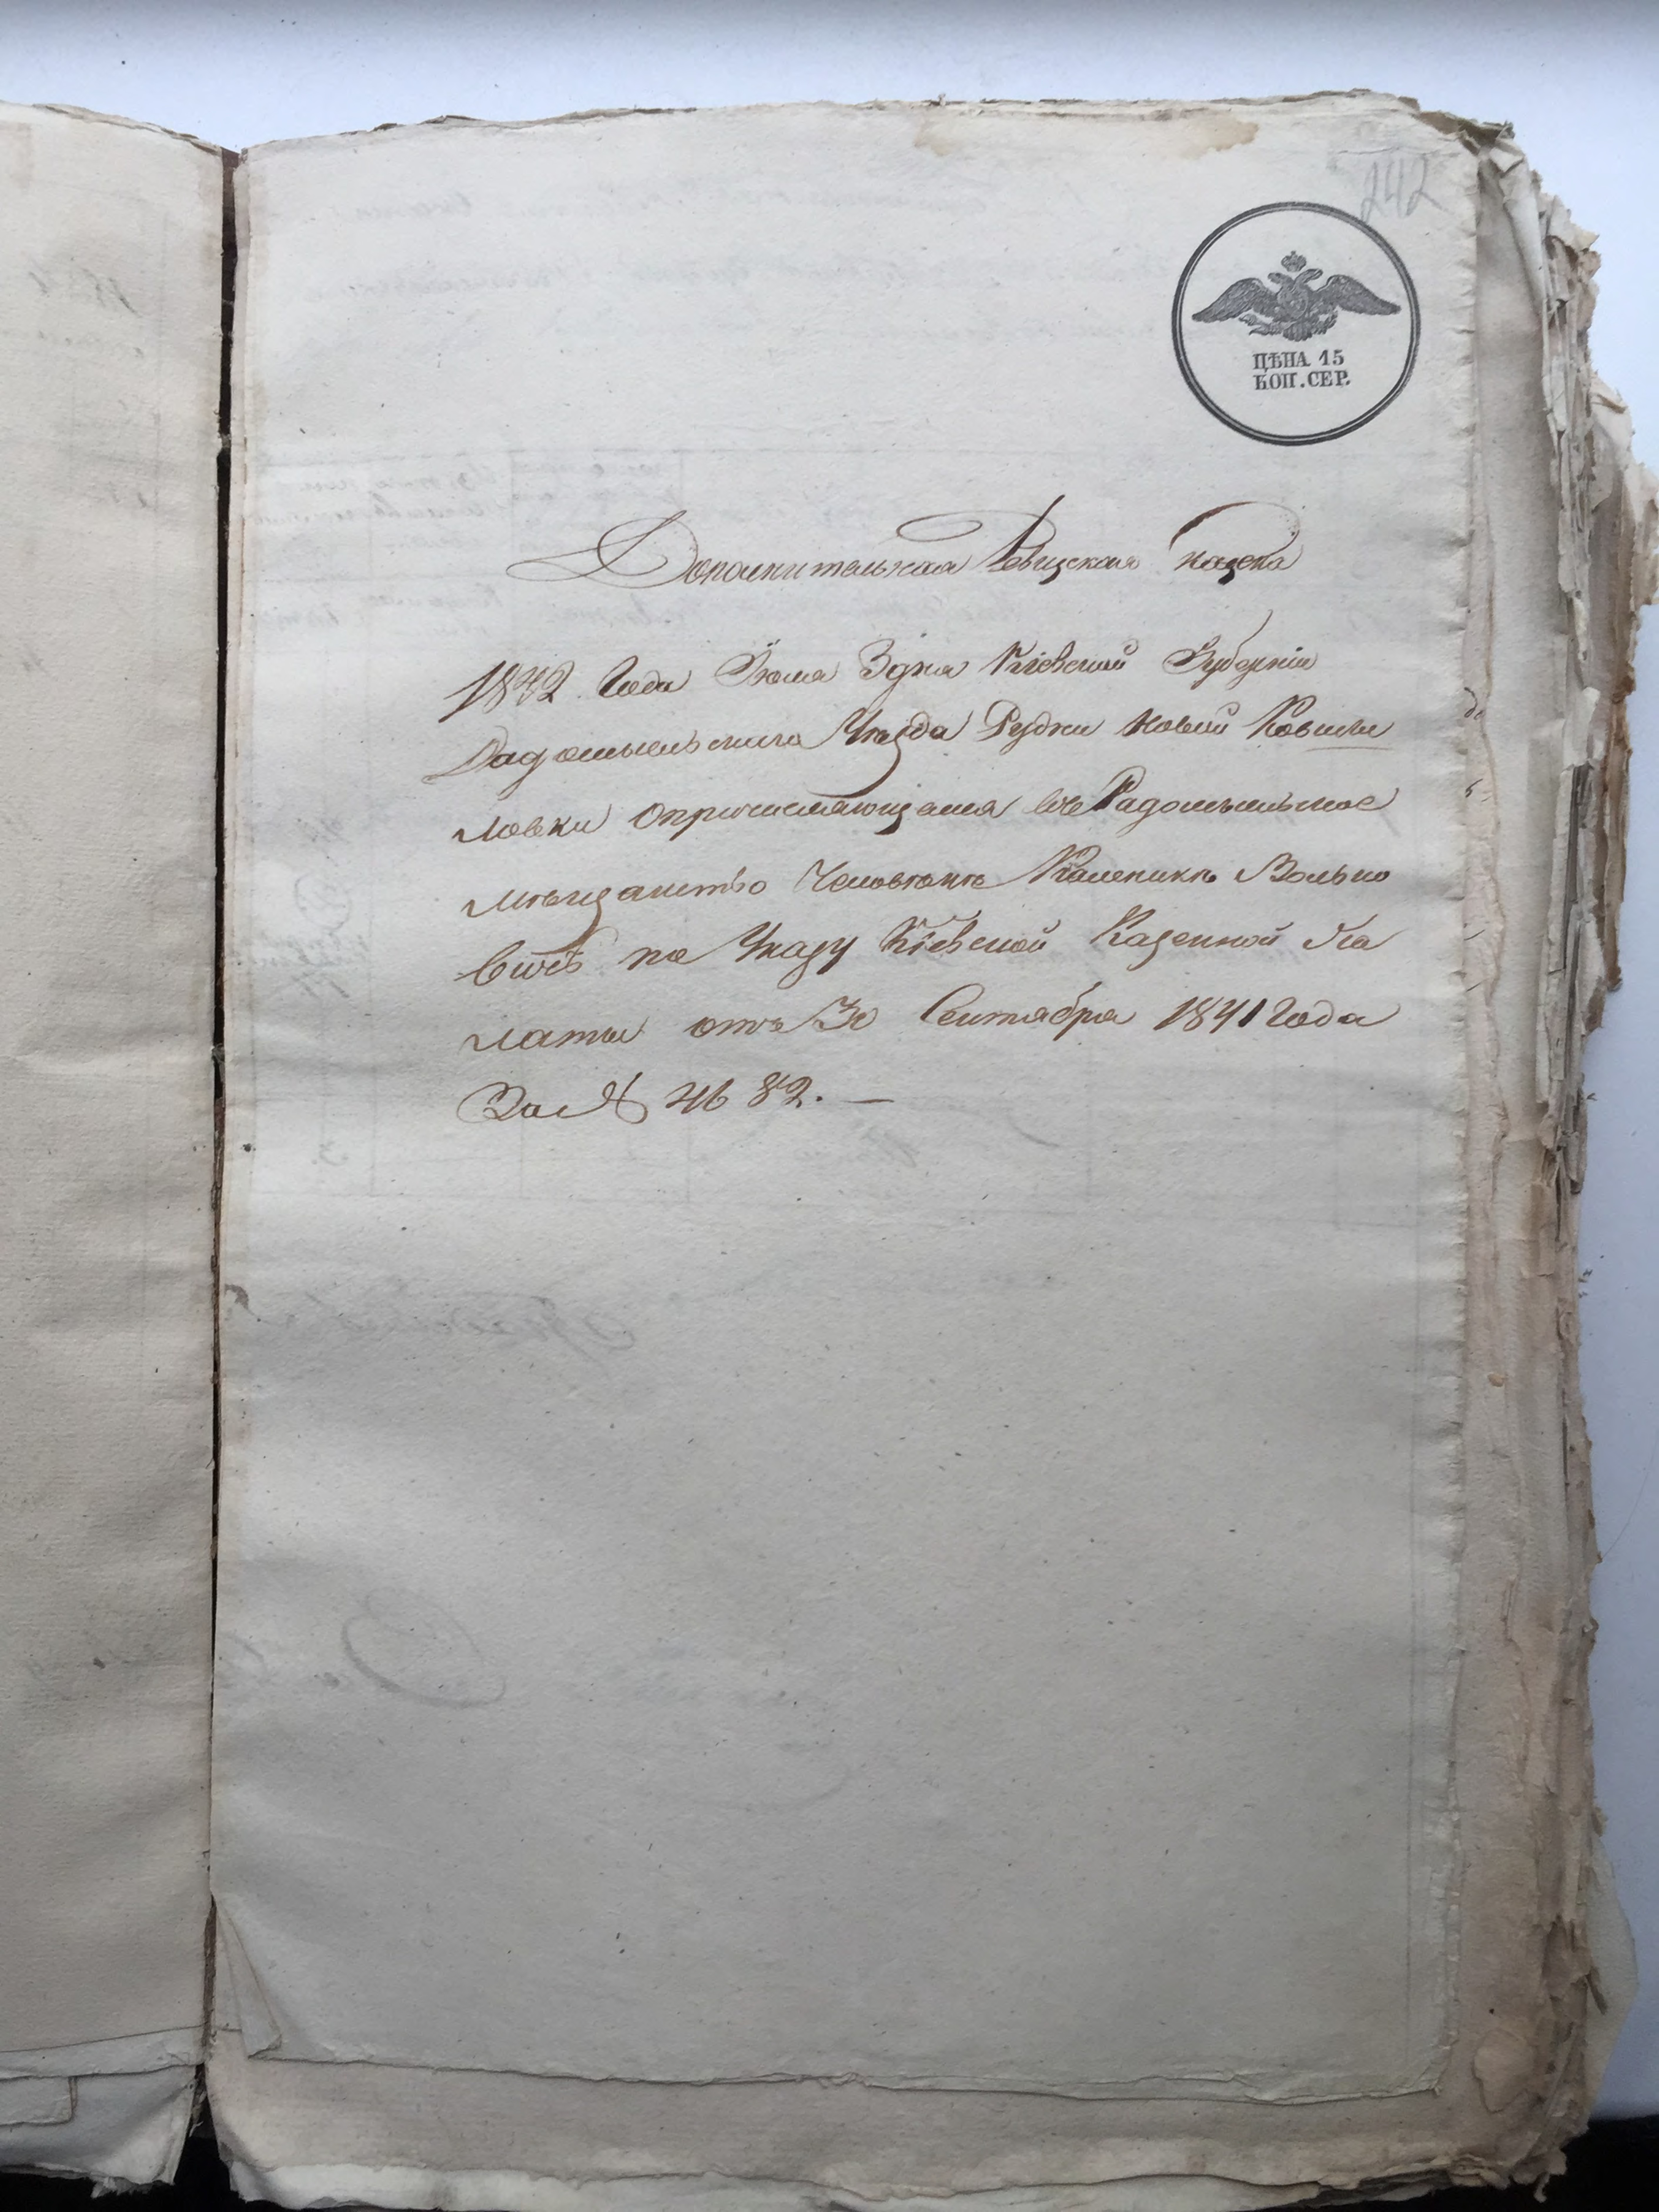 242
ЦѢНА 15
КОП. СЕР.
Дополнительная Ревизская сказка
1842 Года Іюля 3 дня Кіевской Губерніи
Радомысльскаго Уезда Рудни Новой
ловки опричисляющемся въ Радомысльское
мѣщанство Человѣкѣ Каленикѣ Волько
вичѣ по Указу Кіевской Казенной Па
латы отъ 30 Сентября 1841 Года
За № 4682. —